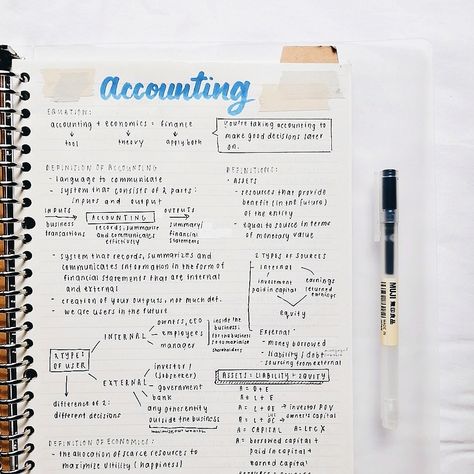 accounting
EQUATION:
accounting + economics = finance
tool theory apply both
you're taking accounting to
make good decisions later
on.
DEFINITION OF ACCOUNTING
- language to communicate
- system that consists of 2 parts:
inputs and output
INPUTS
business
transactions
ACCOUNTING
records, summarize
and communicates
effectively
OUTPUTS
summary/
financial
statements
- system that records, summarizes and
communicates information in the form of
financial statements that are internal
and external
- creation of your outputs, not much det.
- we are users in the future
2 TYPES
OF USER
INTERNAL
owners, CEO
employees
manager
inside the
business:
for the business
to maximize
shareholders
EXTERNAL
investor/
government
bank
any other entity
outside the business
difference of 2:
different decisions
DEFINITION OF ECONOMICS
- the allocation of scarce resources to
maximize utility (happiness)
DEFINITIONS:
- ASSETS
- resources that provide
benefit (in the future)
of the entity
- equal to source in terms
of monetary value
2 TYPES OF SOURCES
internal
investment
paid in capital
earnings
returned
earnings
equity
External
- money borrowed
- liability / debt
sourcing from external
ASSETS = LIABILITY + EQUITY
A = L + E
A = L + OE → investor POV
A = L + OE → owner's capital
A = CAPITAL
A = borrowed capital +
paid in capital +
earned capital
MUJI 無印良品